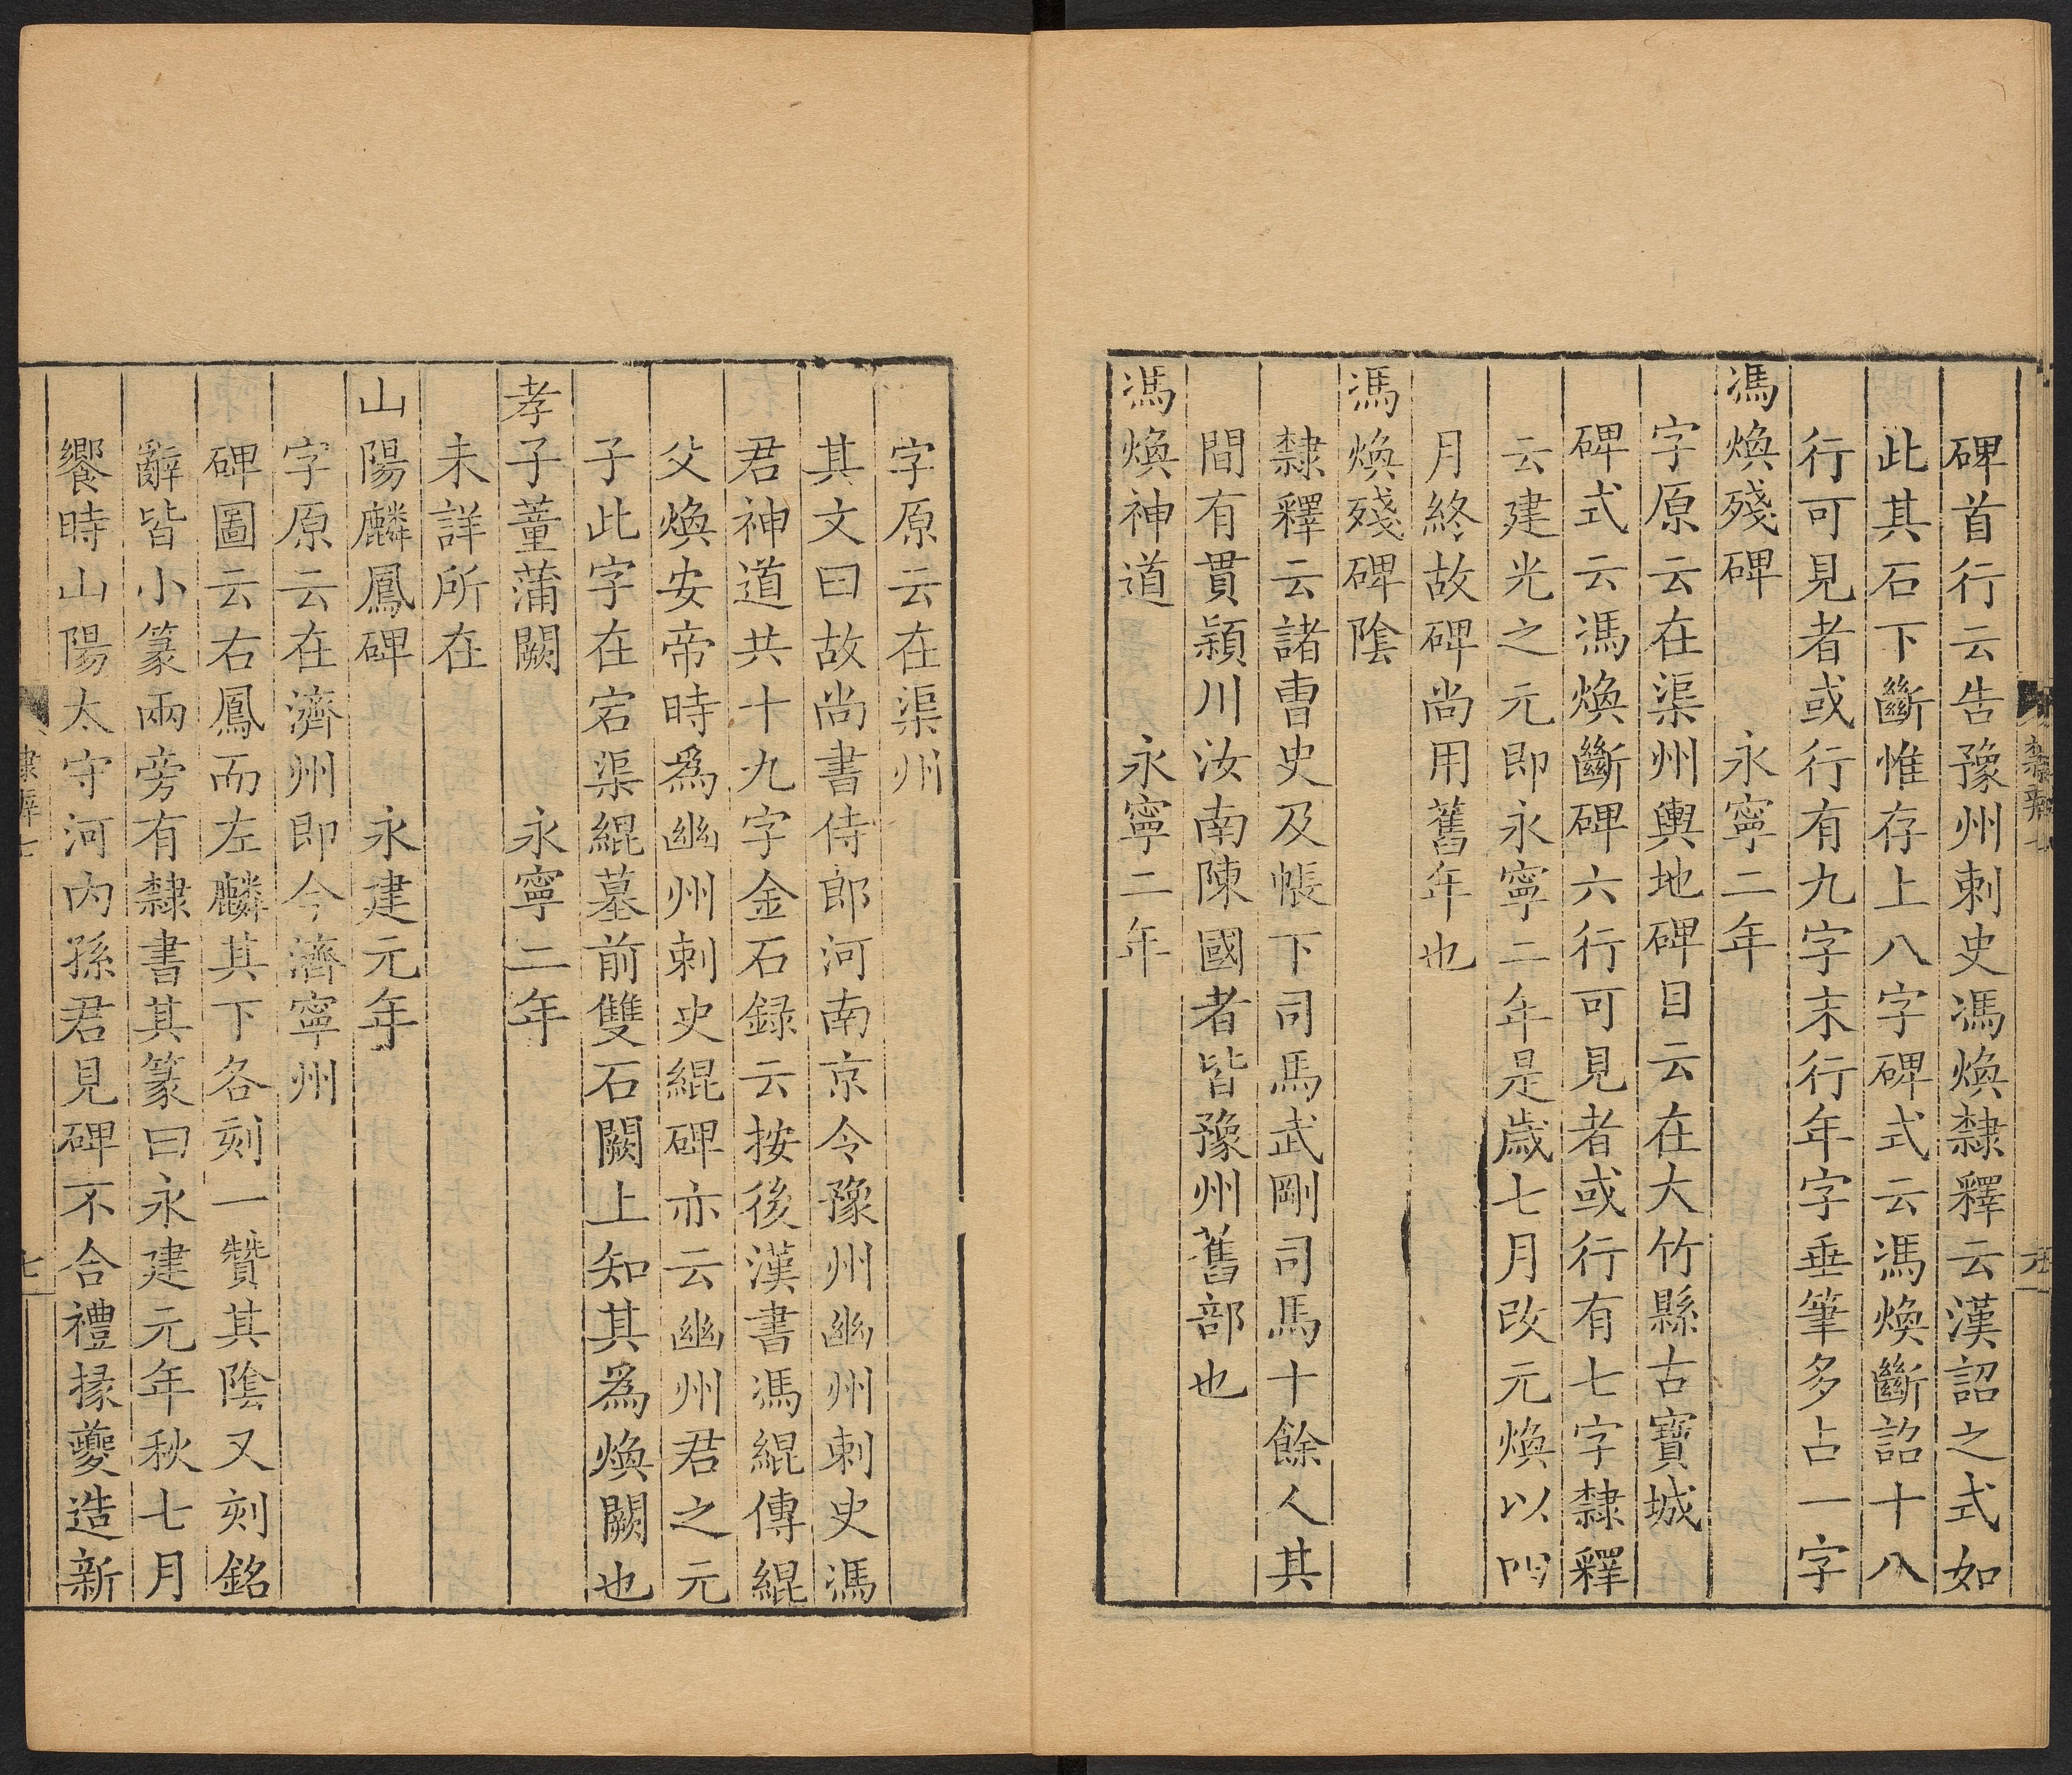 碑首行云告豫州刺史馮煥隸釋云漢詔之式如
此其石下斷惟存上八字碑式云馮煥斷詔十八
行可見者或行有九字末行年字垂筆多占一字
馮煥殘碑　永寧二年
字原云在渠州輿地碑目云在大竹縣古寶城
碑式云馮煥斷碑六行可見者或行有七字隸釋
云建光之元即永寧二年是歲七月改元煥以四
月終故碑尚用舊年也
馮煥殘碑陰
隸釋云諸曹史及帳下司馬武剛司馬十餘人其
間有貫潁川汝南陳國者皆豫州舊部也
馮煥神道　永寧二年
字原云在渠州
其文曰故尚書侍郎河南京令豫州幽州刺史馮
君神道共十九字金石録云按後漢書馮緄傳緄
父煥安帝時爲幽州刺史緄碑亦云幽州君之元
子此字在宕渠緄墓前雙石闕上知其爲煥闕也
孝子董蒲闕　永寧二年
未詳所在
山陽麟鳳碑　永建元年
字原云在濟州即今濟寧州
碑圖云右鳳而左麟其下各刻一贊其陰又刻銘
辭皆小篆兩旁有隸書其篆曰永建元年秋七月
饗時山陽太守河內孫君見碑不合禮掾夔造新
隸辨七
七